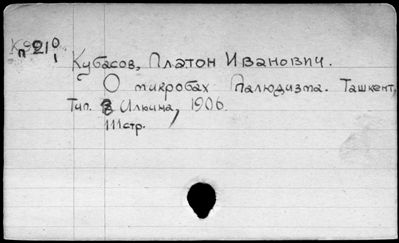 п 210
1
Кубасов, Платон Иванович.
О микробах палюдизма. Ташкент,
Тип. Илкина, 1906.
111 стр.